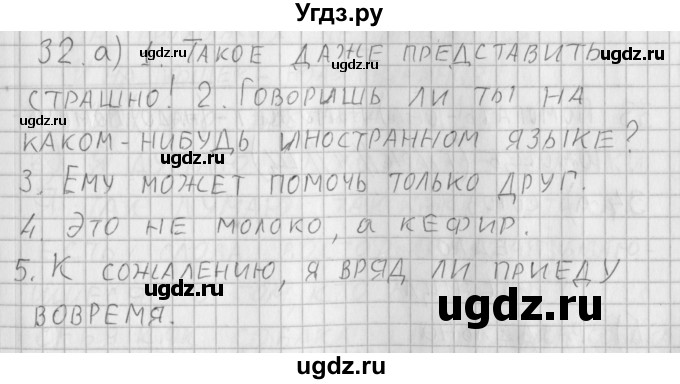 Угдз.ру
32. а) 1. Такое даже представить
страшно! 2. Говоришь ли ты на
каком-нибудь иностранном языке?
3. Ему может помочь только друг.
4. Это не молоко, а кефир.
5. К сожалению, я вряд ли приеду
вовремя.
ugdz.ru
ugdz.ru
ugdz.ru
ugdz.ru
ugdz.ru
ugdz.ru
ugdz.ru
ugdz.ru
ugdz.ru
ugdz.ru
ugdz.ru
ugdz.ru